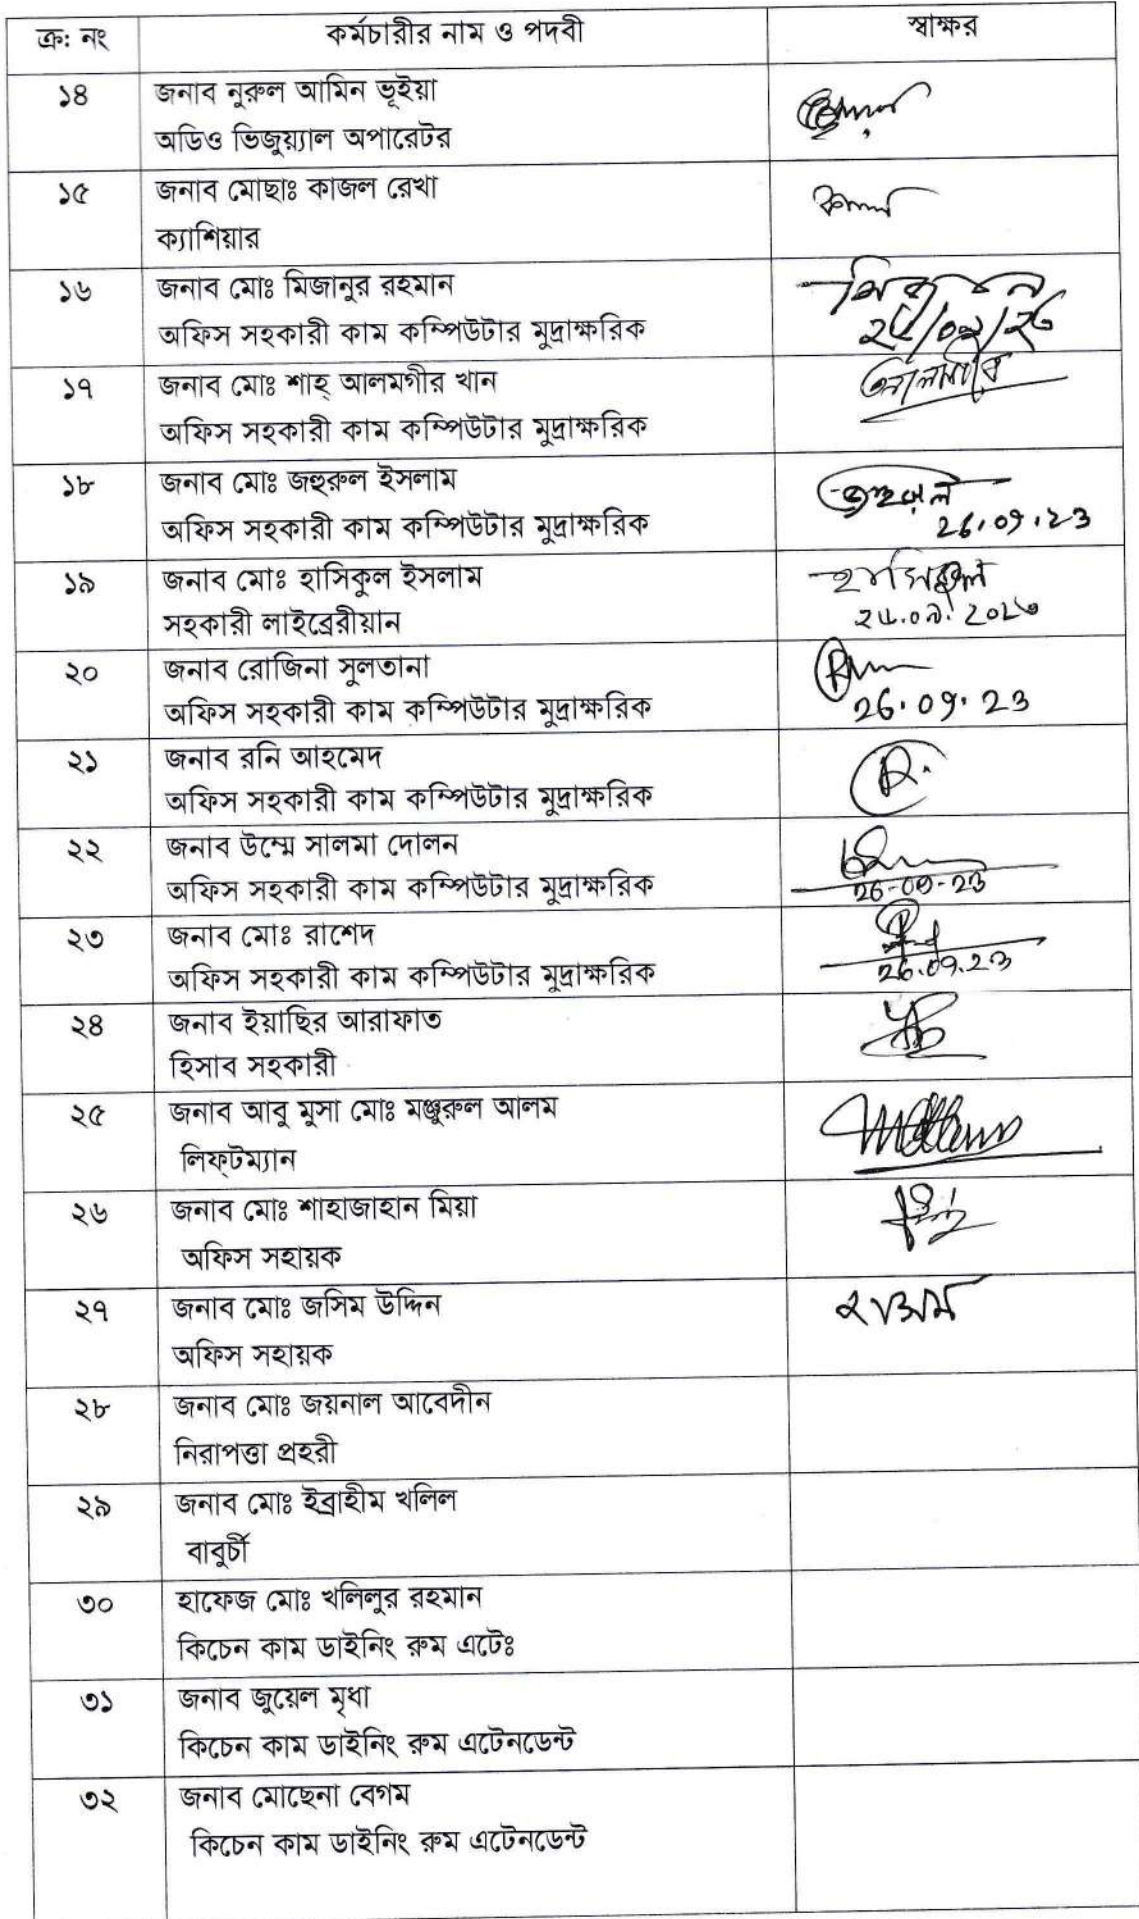 ক্র: নং কর্মচারীর নাম ও পদবী স্বাক্ষর
১৪ জনাব নুরুল আমিন ভূইয়া
অডিও ভিজুয়্যাল অপারেটর
১৫ জনাব মোছাঃ কাজল রেখা
ক্যাশিয়ার
১৬ জনাব মোঃ মিজানুর রহমান
অফিস সহকারী কাম কম্পিউটার মুদ্রাক্ষরিক
১৭ জনাব মোঃ শাহ্ আলমগীর খান
অফিস সহকারী কাম কম্পিউটার মুদ্রাক্ষরিক
১৮ জনাব মোঃ জহুরুল ইসলাম
অফিস সহকারী কাম কম্পিউটার মুদ্রাক্ষরিক 26.09.23
১৯ জনাব মোঃ হাসিকুল ইসলাম
সহকারী লাইব্রেরীয়ান
২০ জনাব রোজিনা সুলতানা
অফিস সহকারী কাম কম্পিউটার মুদ্রাক্ষরিক 26.09.23
২১ জনাব রনি আহমেদ
অফিস সহকারী কাম কম্পিউটার মুদ্রাক্ষরিক
২২ জনাব উম্মে সালমা দোলন
অফিস সহকারী কাম কম্পিউটার মুদ্রাক্ষরিক 26-09-23
২৩ জনাব মোঃ রাশেদ
অফিস সহকারী কাম কম্পিউটার মুদ্রাক্ষরিক 26.09.23
২৪ জনাব ইয়াছির আরাফাত
হিসাব সহকারী
২৫ জনাব আবু মুসা মোঃ মঞ্জুরুল আলম
লিফ্টম্যান
২৬ জনাব মোঃ শাহাজাহান মিয়া
অফিস সহায়ক
২৭ জনাব মোঃ জসিম উদ্দিন
অফিস সহায়ক
২৮ জনাব মোঃ জয়নাল আবেদীন
নিরাপত্তা প্রহরী
২৯ জনাব মোঃ ইব্রাহীম খলিল
বাবুর্চী
৩০ হাফেজ মোঃ খলিলুর রহমান
কিচেন কাম ডাইনিং রুম এটেঃ
৩১ জনাব জুয়েল মৃধা
কিচেন কাম ডাইনিং রুম এটেনডেন্ট
৩২ জনাব মোছেনা বেগম
কিচেন কাম ডাইনিং রুম এটেনডেন্ট